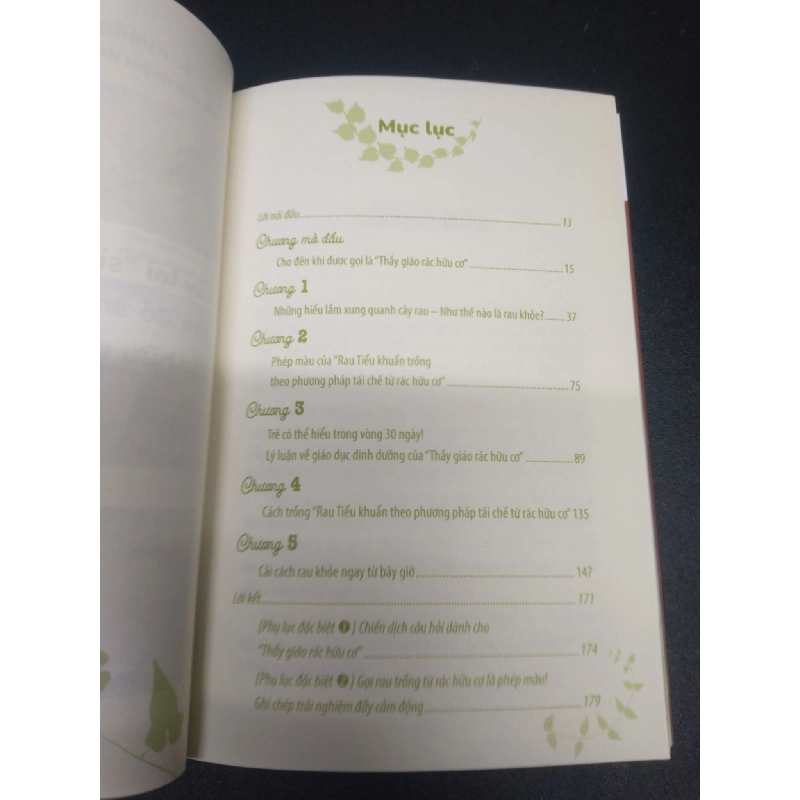 Mục lục
Lời nói đầu 13
Chương mở đầu
Cho đến khi được gọi là "Thầy giáo rác hữu cơ" 15
Chương 1
Những hiểu lầm xung quanh cây rau – Như thế nào là rau khỏe? 37
Chương 2
Phép màu của "Rau Tiểu khuẩn trồng
theo phương pháp tái chế từ rác hữu cơ" 75
Chương 3
Trẻ có thể hiểu trong vòng 30 ngày!
Lý luận về giáo dục dinh dưỡng của "Thầy giáo rác hữu cơ" 89
Chương 4
Cách trồng "Rau Tiểu khuẩn theo phương pháp tái chế từ rác hữu cơ" 135
Chương 5
Cải cách rau khỏe ngay từ bây giờ 147
Lời kết 171
[Phụ lục đặc biệt ❶] Chiến dịch câu hỏi dành cho
"Thầy giáo rác hữu cơ" 174
[Phụ lục đặc biệt ❷] Gọi rau trồng từ rác hữu cơ là phép màu!
Ghi chép trải nghiệm đầy cảm động 179